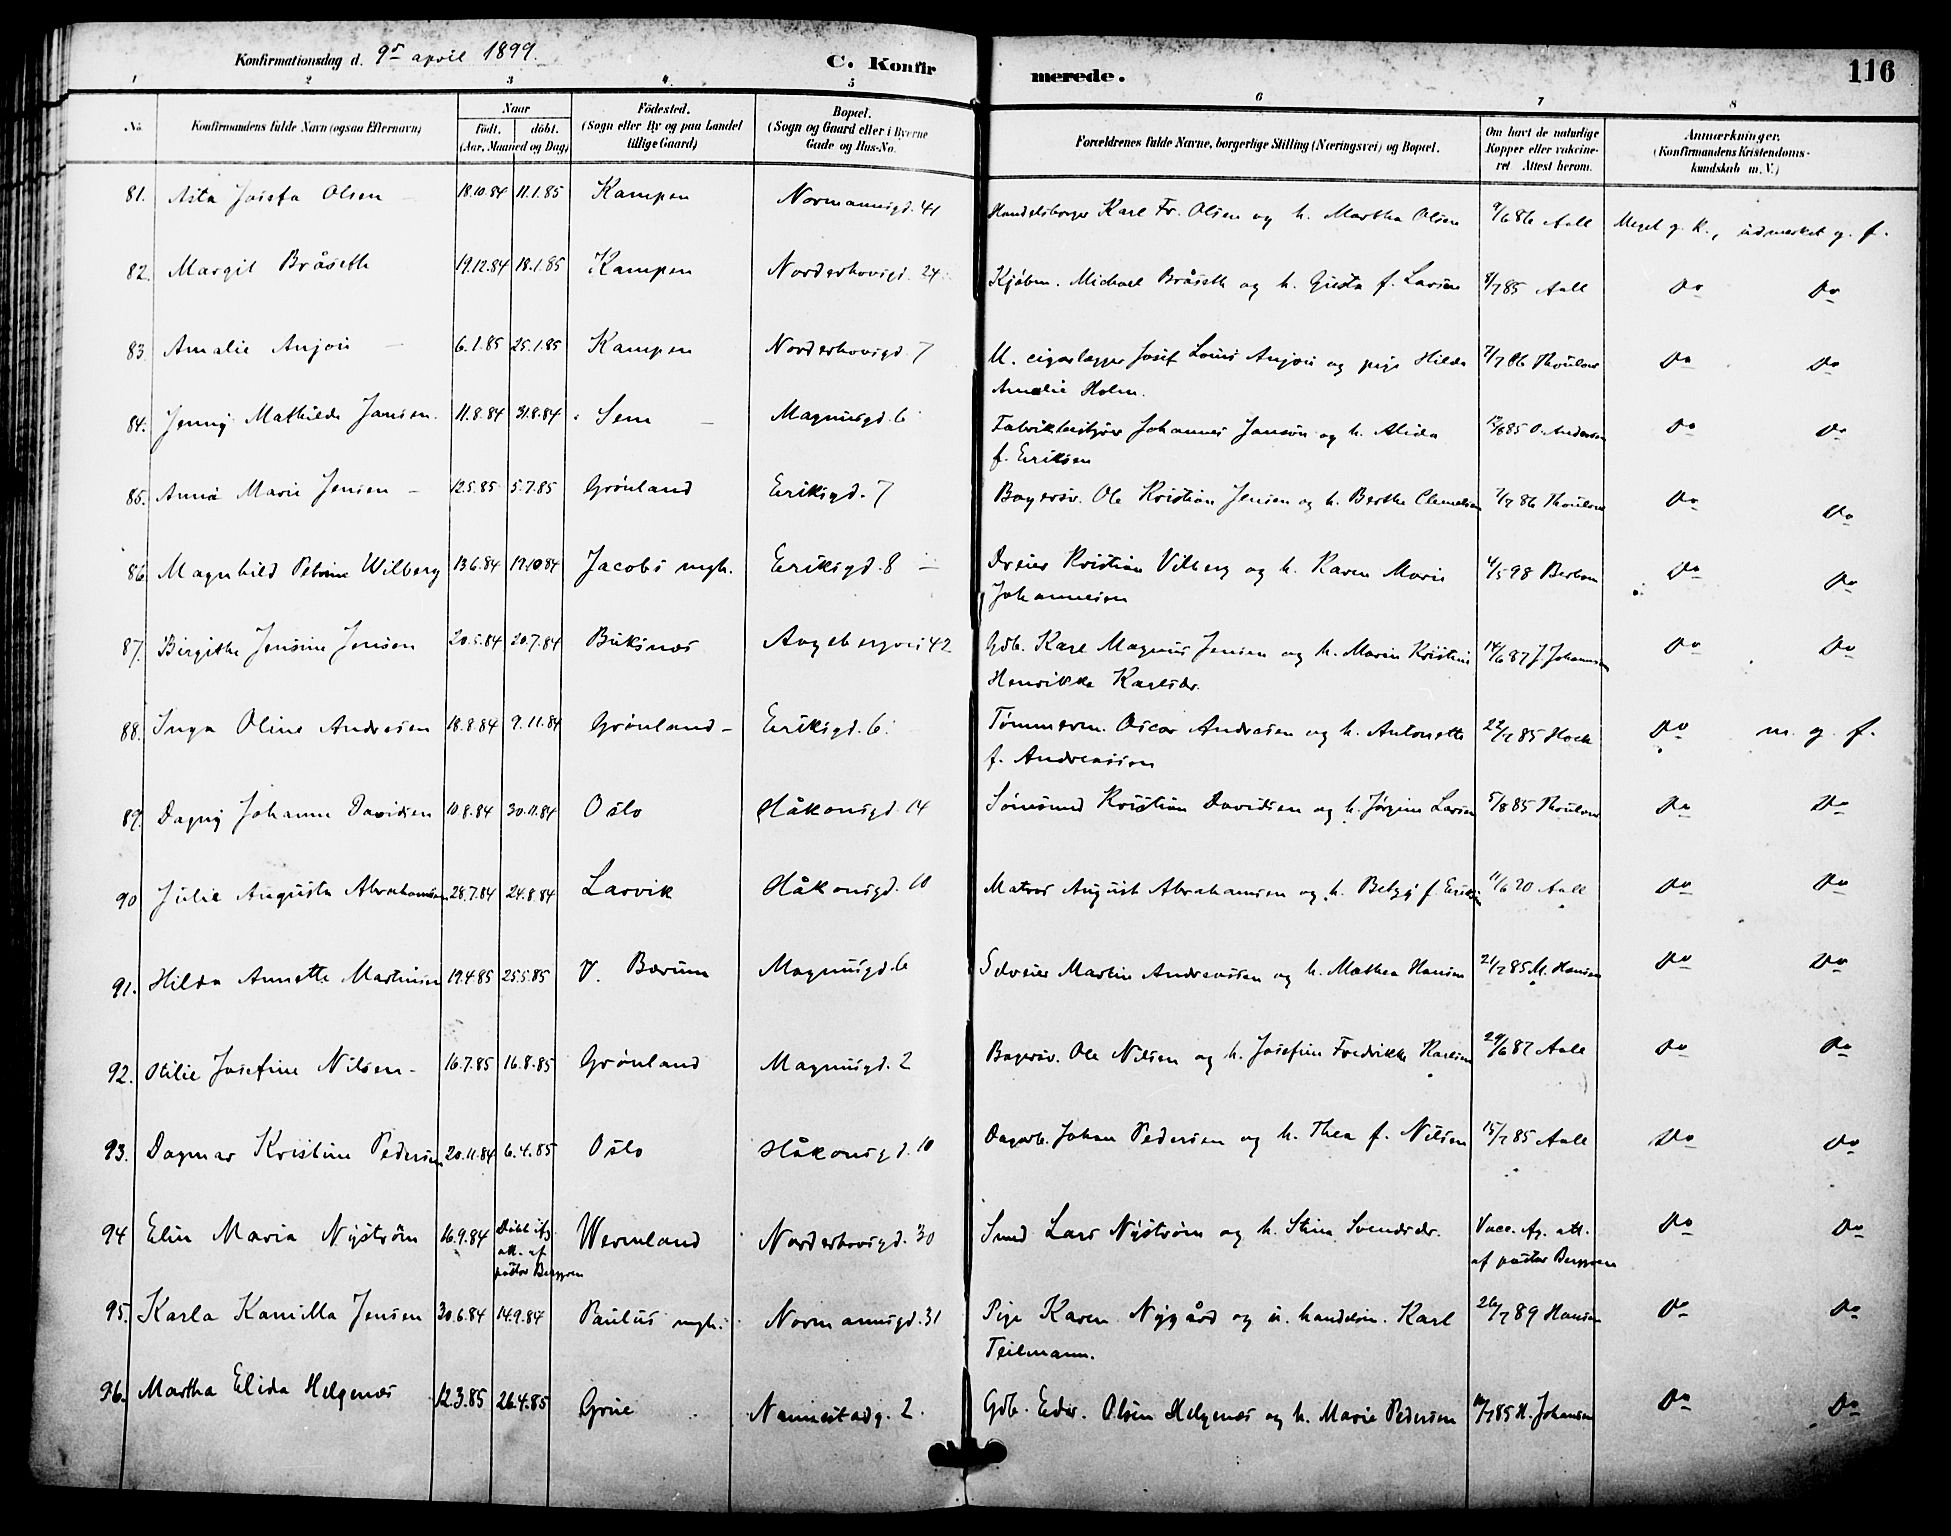 Konfirmationsdag d. 9de april 1899.
C. Konfirmerede.
116
1 2 3 4. 5 6 7 8
No. Konfirmandens fulde Navn (ogsaa Efternavn) Naar født. døbt. (Aar, Maaned og Dag) Fødested. (Sogn eller By og paa Landet tillige Gaard) Bopæl. (Sogn og Gaard eller i Byerne Gade og Hus-No. Forældrenes fulde Navne, borgerlige Stilling (Næringsvei) og Bopæl. Om havt de naturlige Kopper eller vakcineret Attest herom. Anmærkninger. (Konfirmandens Kristendomskundskab m. V.)
81. Asta Josefa Olsen 18.10.84 11.1.85 Kampen Normannsgd. 41 Handelsborger Karl Fr. Olsen og h. Martha Olsen 9/6 86 Aall Meget g. K., udmerket g. f.
82. Margit Bråseth 19.12.84 18.1.85 Kampen Norderhovsgd. 24 Kjøbm. Michael Bråseth og h. Gusta f. Larsen 8/7 85 Aall Do Do
83. Amalie Anjou 6.1.85 25.1.85 Kampen Norderhovsgd. 7 U. cigarlægger Josef Louis Anjou og pige Hilda
Amalie Holm. 7/7 86 Thoulow Do Do
84. Jenny Mathilde Jansen. 11.8.84 31.8.84 Sem Magnusgd. 6 Johannes Jansen og h. Alida
f. Eriksen 85 O. Andersen Do Do
85. Anna Marie Jensen 12.5.85 5.7.85 Grönland Eriksgd. 7 Bagersv. Ole Kristian Jensen og h. Berthe 7/7 86 Thoulow Do Do
86. Magnhild Petrine Wilberg 13.6.84 19.10.84 Jacobs mgh. Eriksgd. 8 Dreier Kristian Vilberg og h. Karen Marie
Johannesen 4/5 98 Do Do
87. Birgithe Jensine Jensen 20.5.84 20.7.84 Buksnæs Aagebergvei 42 Gdb. Karl Magnus Jensen og h. Maren Kristine
Henrikke Karlsdr. 14/6 87 J Johannsen Do Do
88. Inga Oline Andresen 18.8.84 9.11.84 Grönland Eriksgd. 6 Tømmerm. Oscar Andresen og h. Antonette
f. Andreassen 22/7 85 Do m. g. f.
89. Dagny Johanne Davidsen 10.8.84 30.11.84 Oslo Håkonsgd. 14 Kristian Davidsen og h. Jørgine Larsen 5/8 85 Thoulow Do Do
90 Julie Augusta Abrahamsen 28.7.84 24.8.84 Larvik Håkonsgd. 10 Matros August Abrahamsen og h. Betzy f. Eriksen Aall Do Do
91. Hilda Annette Martinsen 19.4.85 25.5.85 V. Bærum Magnusgd. 6 Martin Andreassen og h. Mathea Hansen 21/7 85 M. Hansen Do Do
92. Otilie Josefine Nilsen 16.7.85 16.8.85 Grönland Magnusgd. 2 Bagersv. Ole Nilsen og h. Josefine Fredrikke Karlsen 29/6 87 Aall Do Do
93. Dagmar Kristine Pedersen 20.11.84 6.4.85 Oslo Håkonsgd. 10 Dagarb. Johan Pedersen og h. Thea f. Nilsen 15/7 85 Aall Do Do
94 Elin Maria Nyström 16.9.84 Döbt ifg.
att. af
pastor Berggren Wermland Norderhovsgd. 30 Smed Lars Nyström og h. Stina Svendsdr. Vacc. ifg. att.
af pastor Berggren Do Do
95. Karla Kamilla Jensen 30.6.84 14.9.84 Paulus mgh. Normannsgd. 31 Pige Karen Nygård og u. Karl
Teilmann. 26/7 89 Hansen Do Do
96. Martha Elida Helgenæs 12.3.85 26.4.85 Grue Nannestadg. 2. Gdb. Edv. Olsen Helgenæs og h. Marie Pedersen 85 H. Johansen Do Do